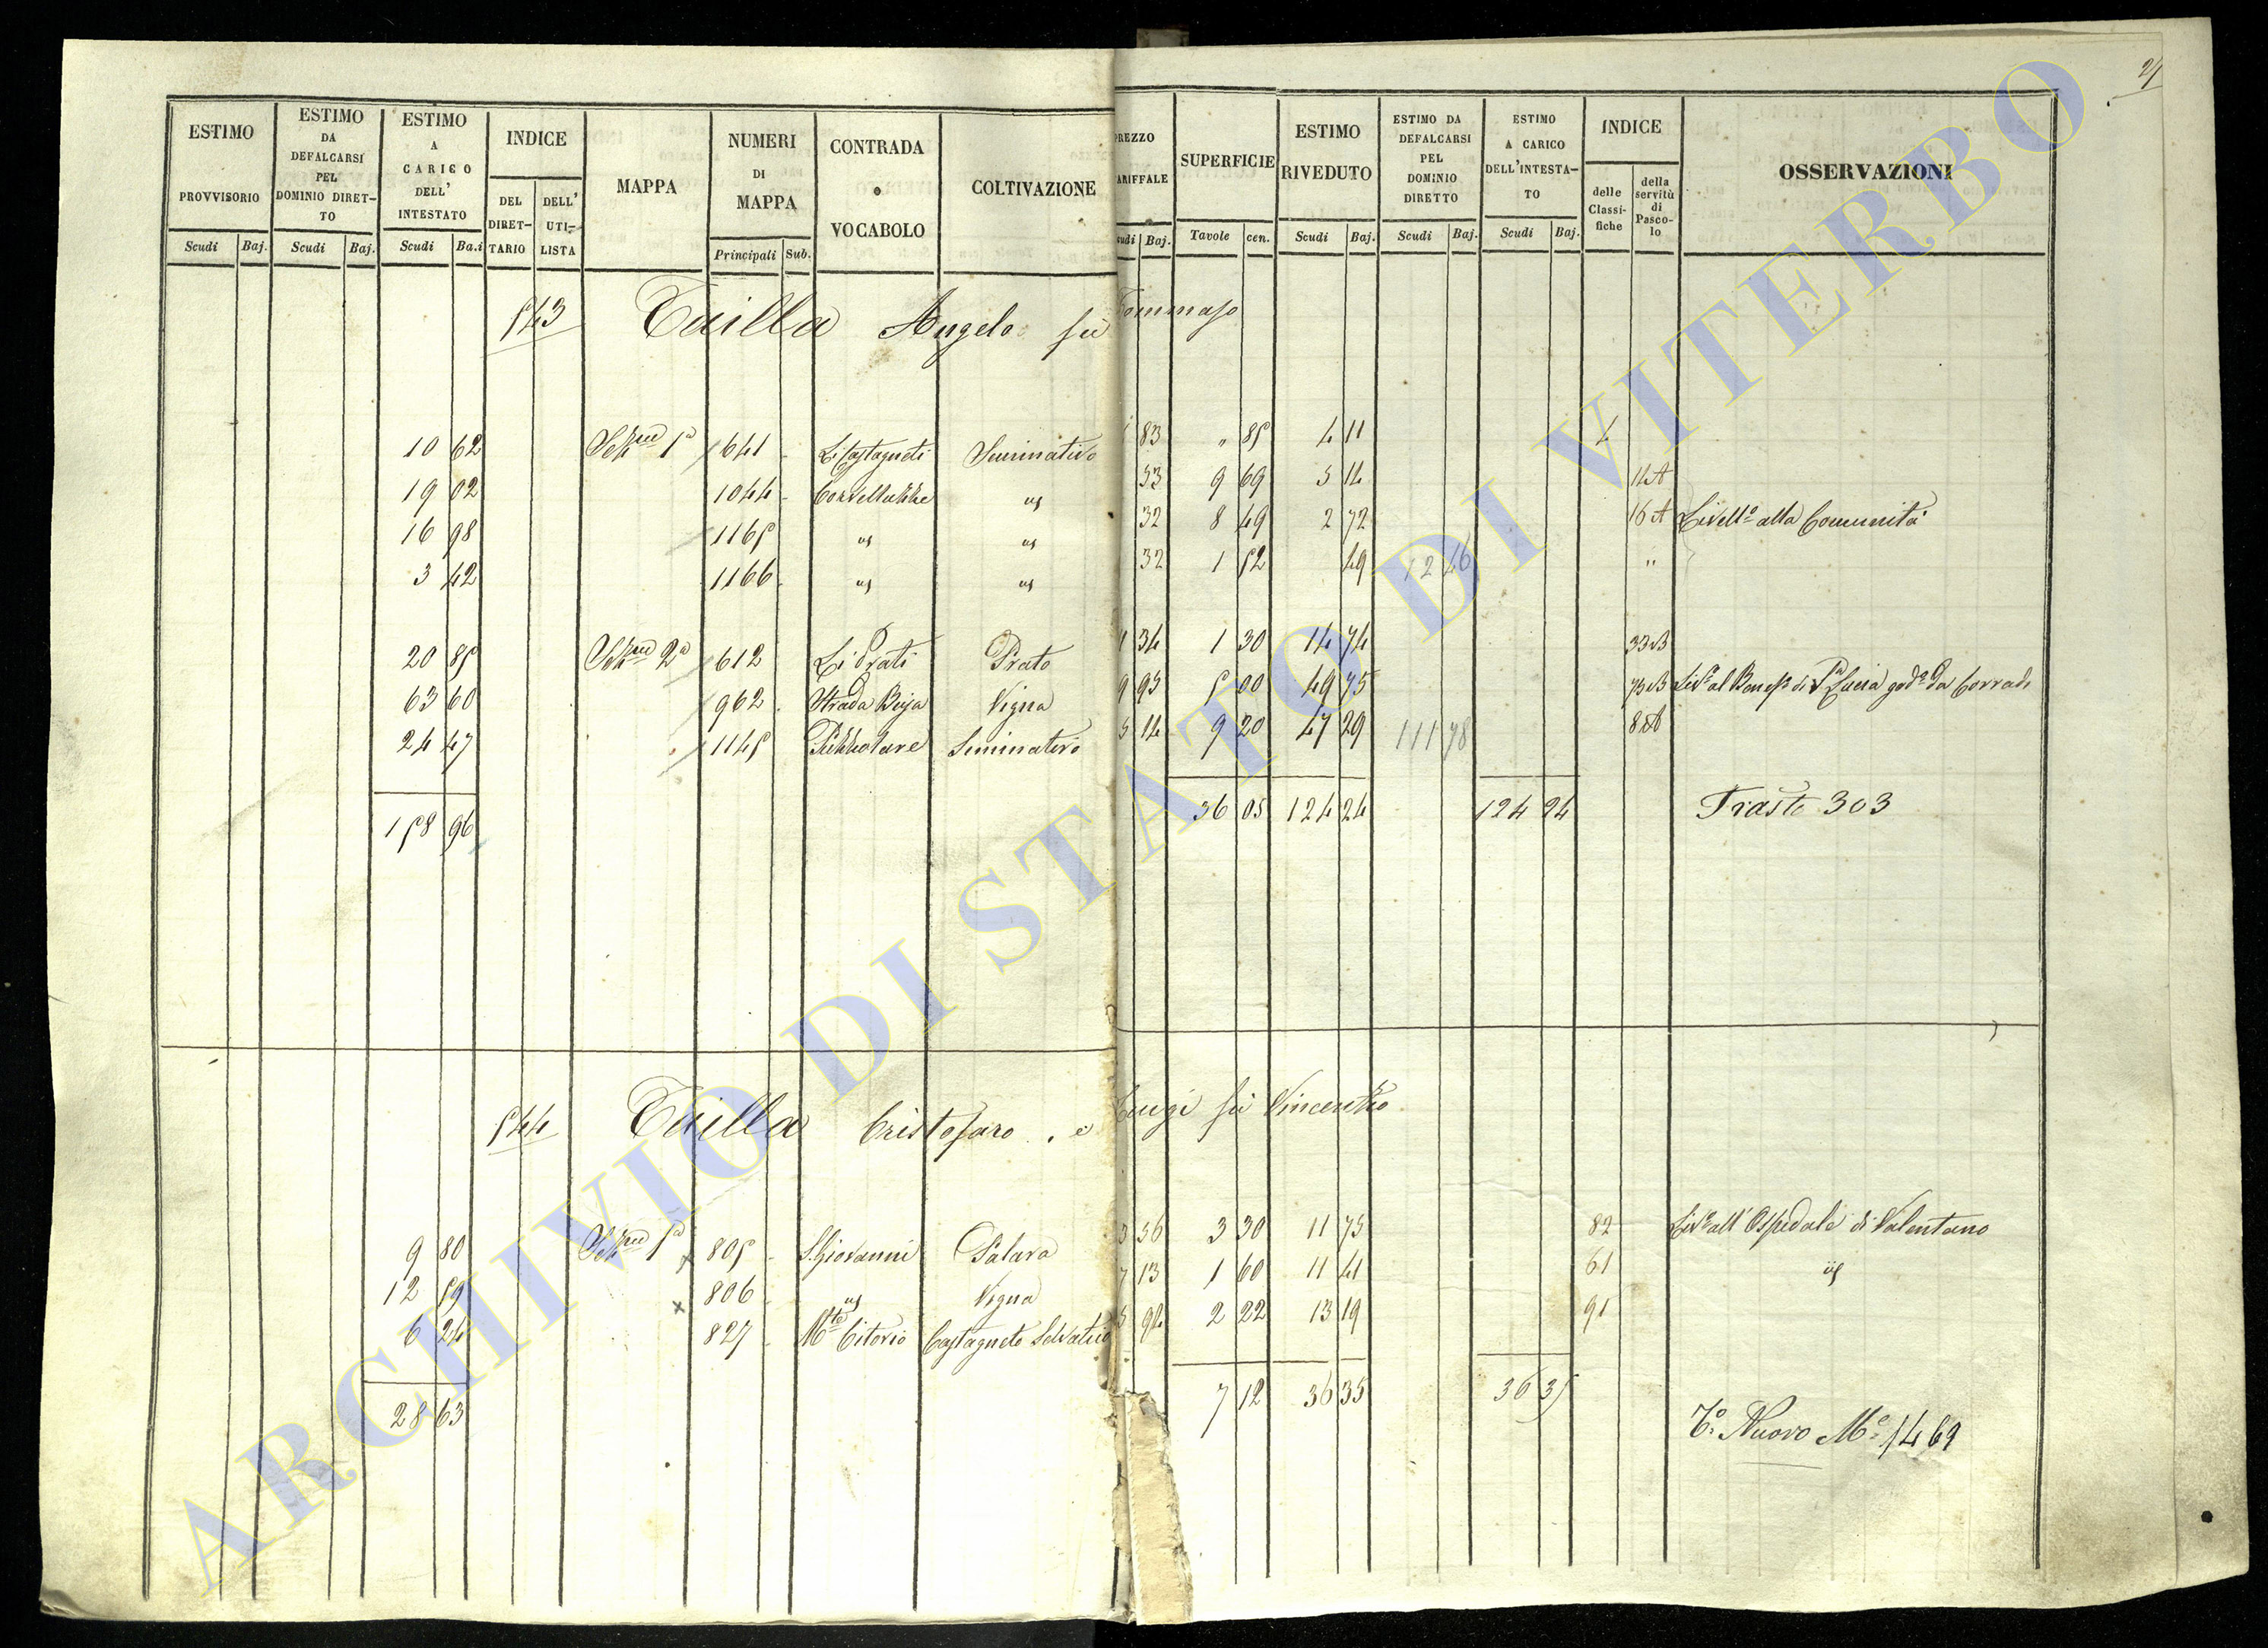 21
ESTIMO PROVVISORIO Scudi Baj.
ESTIMO DA DEFALCARSI PEL DOMINIO DIRETTO Scudi Baj.
ESTIMO A CARICO DELL' INTESTATO Scudi Ba.i
INDICE DEL DIRETTARIO DELL' UTILISTA
MAPPA
NUMERI DI MAPPA Principali Sub.
CONTRADA o VOCABOLO
COLTIVAZIONE
PREZZO TARIFFALE Scudi Baj.
SUPERFICIE Tavole cen.
ESTIMO RIVEDUTO Scudi Baj.
ESTIMO DA DEFALCARSI PEL DOMINIO DIRETTO Scudi Baj.
ESTIMO A CARICO DELL'INTESTATO Scudi Baj.
INDICE delle Classifiche della servitù di Pascolo
OSSERVAZIONI
543 Tuilla Angelo fu Tommaso
10 62 Sez.ne 1a 641 Li Castagneti Seminativo 83 " 85 4 11 4
19 02 1044 us 53 9 69 5 14 14 A
16 98 1165 us us 32 8 49 2 72 16 A Livello alla Comunità
3 42 1166 us us 32 1 52 49 12 46 "
20 85 Sez.ne 2a 612 Li Prati Prato 34 1 30 14 74 33 B
63 60 962 Strada Vigna 9 95 5 00 49 75 73 B Liv.o al Benef.o di S.a Lucia god.o da Corradi
24 47 1145 Seminativo 5 14 9 20 47 29 111 78
158 96 36 05 124 24 124 24 Trasto 303
544 Tuilla Cristofaro e Luigi fu Vincenzo
9 80 Sez.ne 1a x 805 S. Giovanni 3 56 3 30 11 75 82 Liv.o all'Ospedale di Valentano
12 59 x 806 us Vigna 7 13 1 60 11 41 61 us
6 24 827 M.te Citorio Castagneto Selvatico 5 94 2 22 13 19 91
28 63 7 12 36 35 36 35
To. Nuovo Mo. 1469
ARCHIVIO DI STATO DI VITERBO